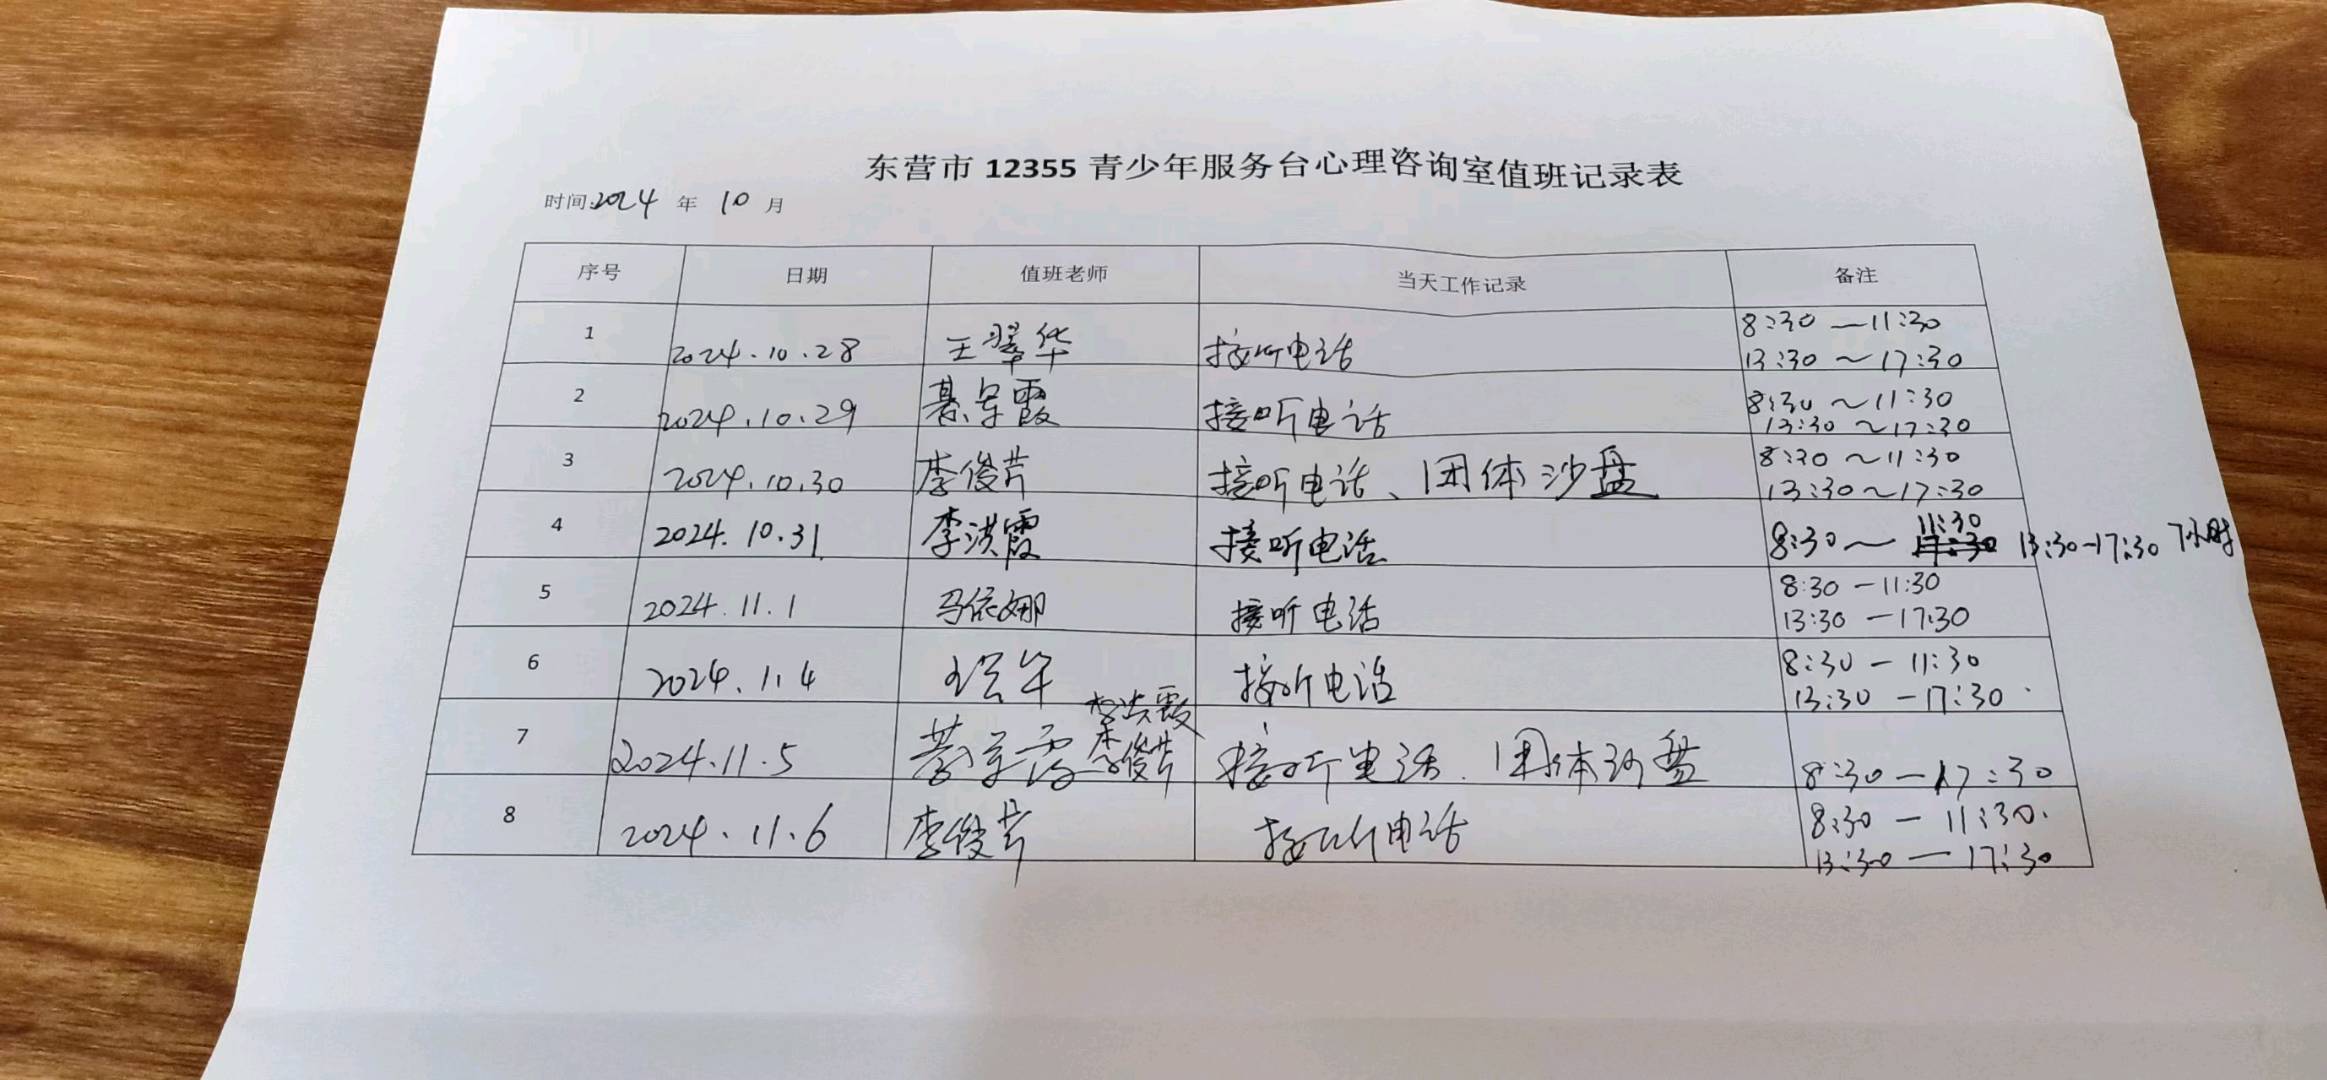 东营市 12355 青少年服务台心理咨询室值班记录表
时间:2024 年 10 月
序号 日期 值班老师 当天工作记录 备注
1 2024.10.28 王翠华 接听电话 8:30—11:30
13:30～17:30
2 2024.10.29 綦军霞 接听电话 8:30～11:30
13:30～17:30
3 2024.10.30 李俊芹 接听电话、团体沙盘 8:30～11:30
13:30～17:30
4 2024.10.31 李洪霞 接听电话 8:30～11:30 13:30-17:30 7小时
5 2024.11.1 马依娜 接听电话 8:30—11:30
13:30—17:30
6 2024.1.4 接听电话 8:30—11:30
13:30—17:30
李洪霞
7 2024.11.5 綦军霞 李俊芹 接听电话、团体沙盘 8:30—17:30
8 2024.11.6 李俊芹 接听电话 8:30—11:30.
13:30—17:30